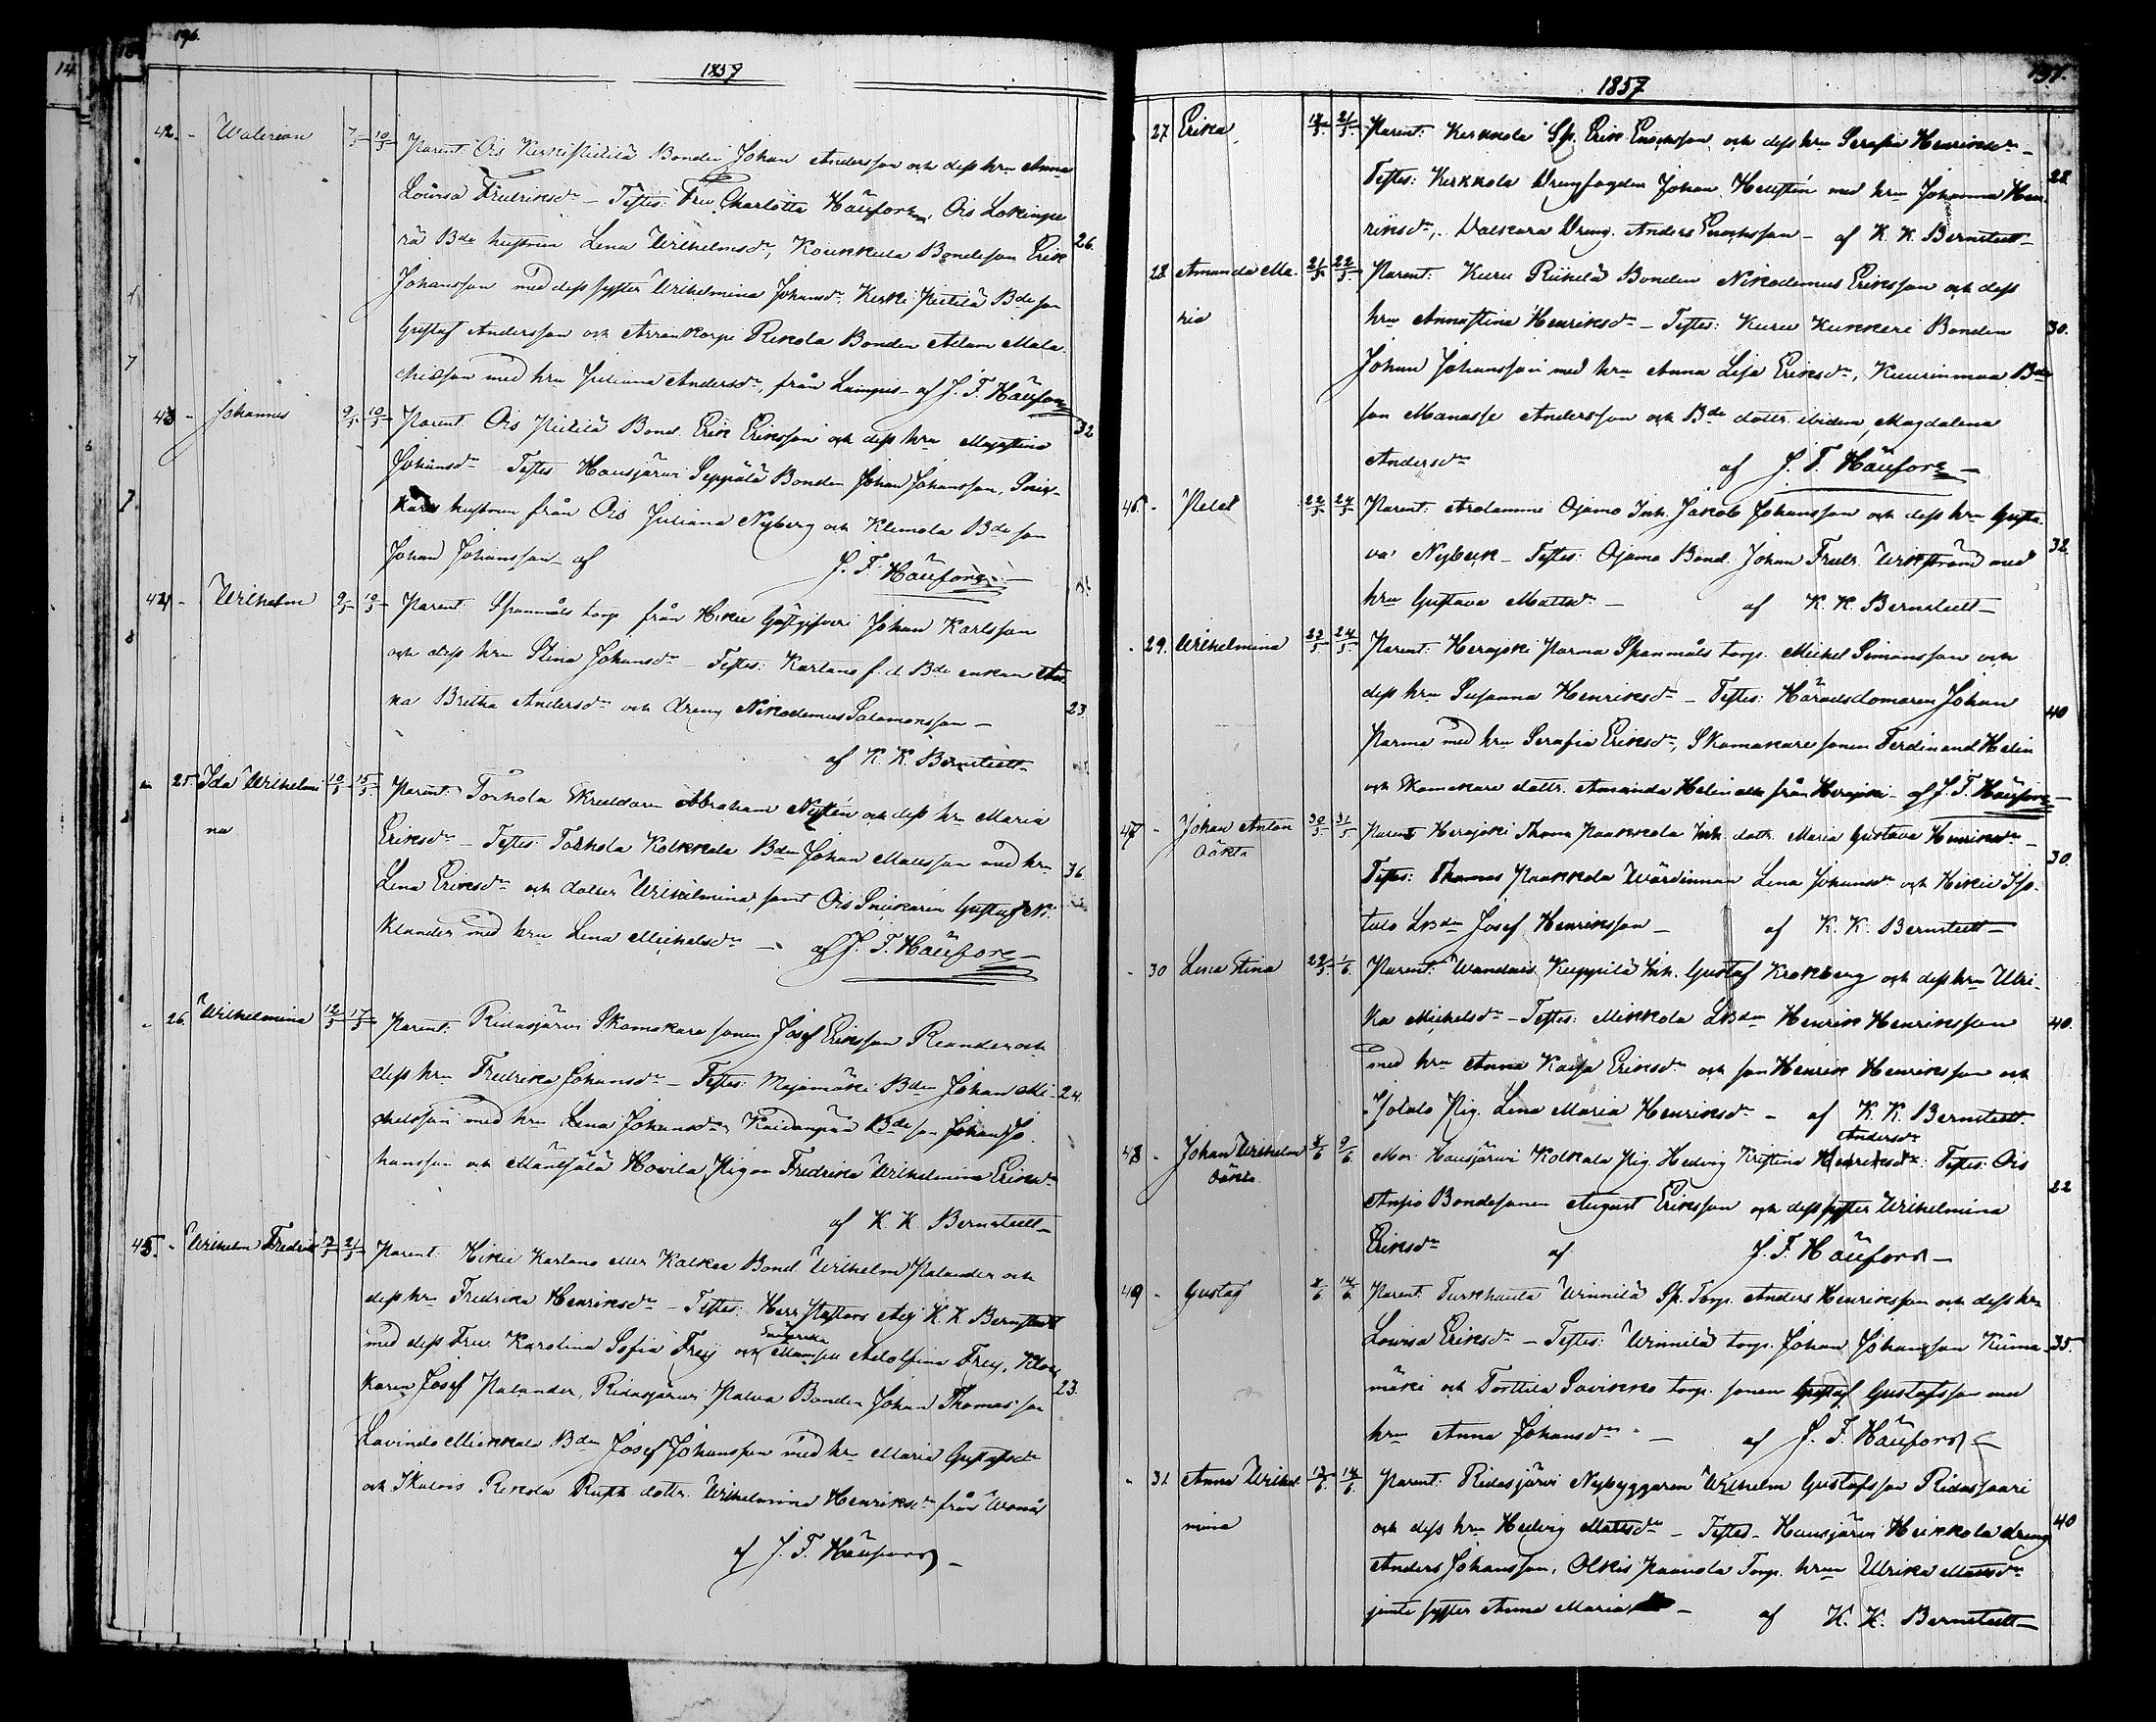 196.
1857
42. - Walerian 7/5 10/5 Parent: Ois Kerkipietilä Bonden Johan Andersson och dess hru Anna
Lovisa Fredriksdr - Testes: Fru Charlotta Häufors, Ois Lokinpe
rä Bde hustrun Lena Wilhelmsdr, Koukkula Bondeson Erik 26.
Johansson med dess syster Wilhelmina Johansdr, Kerki Pietilä Bdeson
Gustaf Andersson och Arrankorpi Rekola Bonden Adam Mala
chiasson med hru Juliana Andersdr, från Lampis - af J. F. Häufors
43 - Johannes 9/5 10/5 Parent. Ois Pietilä Bond. Erik Eriksson och dess hru Majastina 32
Johansdr Testes Hausjärvi Seppälä Bonden Johan Johansson, Snic-
kare hustrun från Ois Juliana Nyberg och Klemola Bde son
Johan Johansson - af J. F. Häufors -
44 - Wilhelm 9/5 10/5 Parent. Spanmåls torp. från Hikie Gästgifveri Johan Karlsson
och dess hru Stina Johansdr - Testes: Karlano f. d. Bde enkan An-
na Britha Andersdr och dreng Nikodemus Salamonsson - 23.
af K. K. Bernstedt -
- 25. Ida Wilhelmi 10/5 15/5 Parent: Torhola Skreddaren Abraham Nysten och dess hru Maria
na Eriksdr - Testes: Torhola Kolkkala Bden Johan Matsson med hru
Lena Eriksdr och dotter Wilhelmina, samt Ois Snickaren Gustaf N. 36.
klander med hru Lena Michelsdr - af J. F. Häufors -
- 26. Wilhelmina 12/5 17/5 Parent: Ridasjärvi Skomakare sonen Josef Eriksson Reander och
dess hru Fredrika Johansdr - Testes: Majamäki Bden Johan Mi- 24.
chelsson med hru Lena Johansdr, Kaidanpää Bde son Johan Jo
hansson och Mäntsälä Hovila Pigan Fredrika Wilhelmina Eriksdr
af K. K. Bernstedt -
45. - Wilhelm Fredrik 17/5 21/5 Parent: Hikie Karlano eller Kalkea Bond Wilhelm Palander och
dess hru Fredrika Henriksdr - Testes: Herr Pastors Adj K. K. Bernstedt
med dess Fru Karolina Sofia Frey och Mamsell Adolfina Frey, Kloc
karen Josef Palander, Ridasjärvi Palva Bonden Johan Thomasson 23.
Lavindo Mikkala Bden Josef Johansson med hru Maria Gustafsdr
och Skalois Rekola Rusth. dottr. Wilhelmina Henriksdr från Wånå
af J. F. Häufors -
1857 197.
27. Erika 18/5 21/5 Parent: Kerkkola Sp. Erik Enochsson och dess hru Serafia Henriksdr -
Testes: Kerkkola Drengfogden Johan Hellstén med hru Johanna Hen 28.
riksdr, Valkara Dreng. Anders Enochsson - af K. K. Bernstedt -
28 Amanda Ma- 21/5 22/5 Parent: Kuru Riikilä Bonden Nikodemus Eriksson och dess
ria hru Annastina Henriksdr - Testes: Kuru Kukkeri Bonden 30.
Johan Johansson med hru Anna Lisa Eriksdr, Kuurinmaa Bde
son Manasse Andersson och Bde dottr. ibidem, Magdalena
Andersdr af J. F. Häufors -
46. - Peter 22/5 24/5 Parent: Arolammi Ojamo Inh. Jakob Johansson och dess hru Gusta
va Nybeck - Testes: Ojamo Bond. Johan Fredr. Wikström med 32.
hru Gustava Mattsdr - af K. K. Bernstedt -
- 29. Wilhelmina 23/5 24/5 Parent: Herajoki Parma Spanmåls torp. Michel Simonsson och
dess hru Susanna Henriksdr - Testes: Häradsdomaren Johan 40
Parma med hru Serafia Eriksdr, Skomakare sonen Ferdinand Helin
och Skomakare dottr. Amanda Helin alla från Herajoki af J. F. Häufors -
47 - Johan Anton 30/5 31/5 Parent Herajoki Thoma Paakkola Inh. dottr. Maria Gustava Henriksdr -
Oäkta Testes: Thomas Paakkola Wärdinnan Lena Johansdr och Hikie Iso- 30.
talo LBden Josef Henriksson - af K. K. Bernstedt -
- 30 Lena Stina 29/5 1/6 Parent: Wandais Kuppilä Inh. Gustaf Krokberg och dess hru Ulri-
ka Michelsdr - Testes: Mikkola LBden Henrik Henriksson 40.
med hru Anna Kajsa Eriksdr och son Henrik Henriksson och
Isotalo Pig. Lena Maria Henriksdr - af K. K. Bernstedt
Andersdr
48 - Johan Wilhelm 8/6 9/6 Mor: Hausjärvi Kolkala Pig. Hedvig Kristina Henriksdr: Testes: Ois
Oäkta. Anpio Bondesonen August Eriksson och dess syster Wilhelmina 22
Eriksdr af J. F. Häufors -
49 - Gustaf 8/6 14/6 Parent: Turkhauta Winnilä Sp. Torp. Anders Henriksson och dess hru
Lovisa Eriksdr - Testes: Winnilä torp. Johan Johansson Kiima- 35.
mäki och Torttila Savikko torp. sonen Gustaf Gustafsson med
hru Anna Johansdr - af J. F. Häufors -
- 31. Anna Wilhel 13/6 14/6 Parent: Ridasjärvi Nybyggaren Wilhelm Gustafsson Ridassaari
mina och dess hru Hedvig Mattsdr - Testes - Hausjärvi Heikkola dreng 40
Anders Johansson, Olkis Paavola Torp. hrun Ulrika Mattsdr
jemte syster Anna Maria - af K. K. Bernstedt -